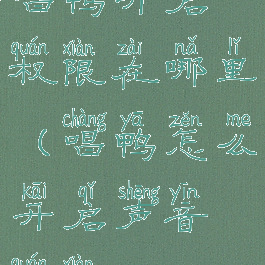 唱鸭开启
quán xiàn zài nǎ lǐ
权限在哪里
chàng yā zěn me
（唱鸭怎么
kāi qǐ shēng yīn
开启声音
quán xiàn